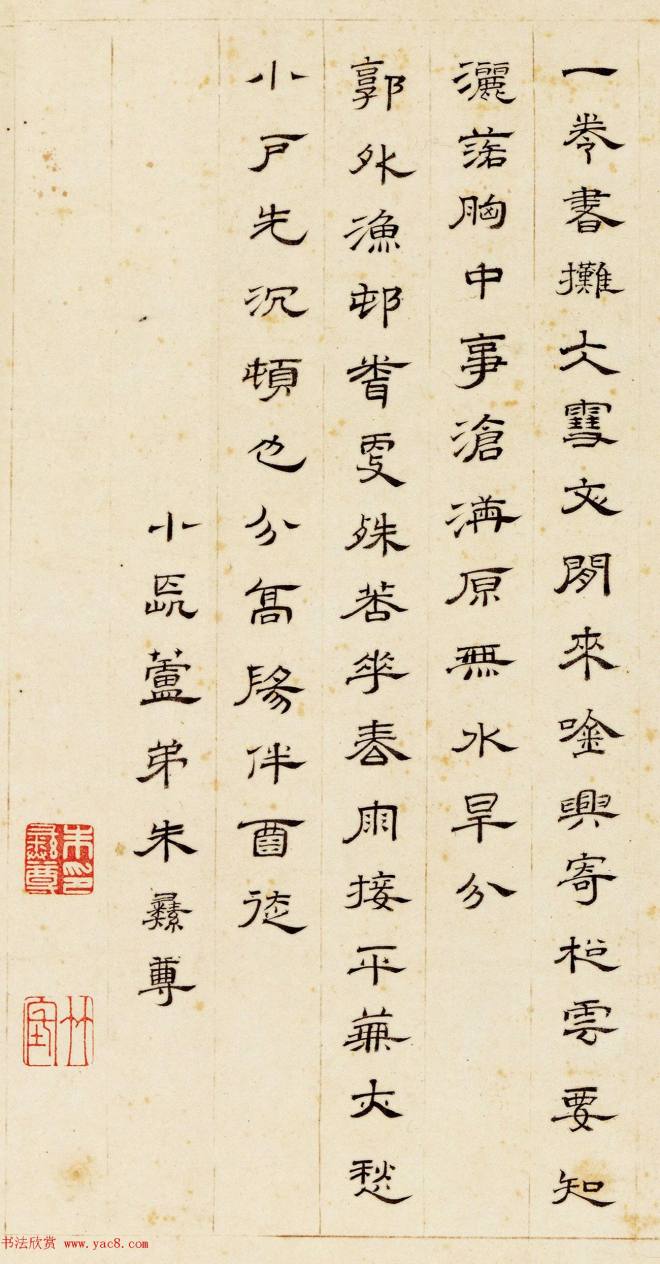 一卷書攤大雪文閒來唫興寄松雲要知
灑落胸中事滄海原無水旱分
郭外漁邨殊華春雨接平蕪大愁
小戶先沉頓也分高陽伴酉徒
小長蘆弟朱彝尊
朱彝尊印
竹垞
书法欣赏 www.yac8.com